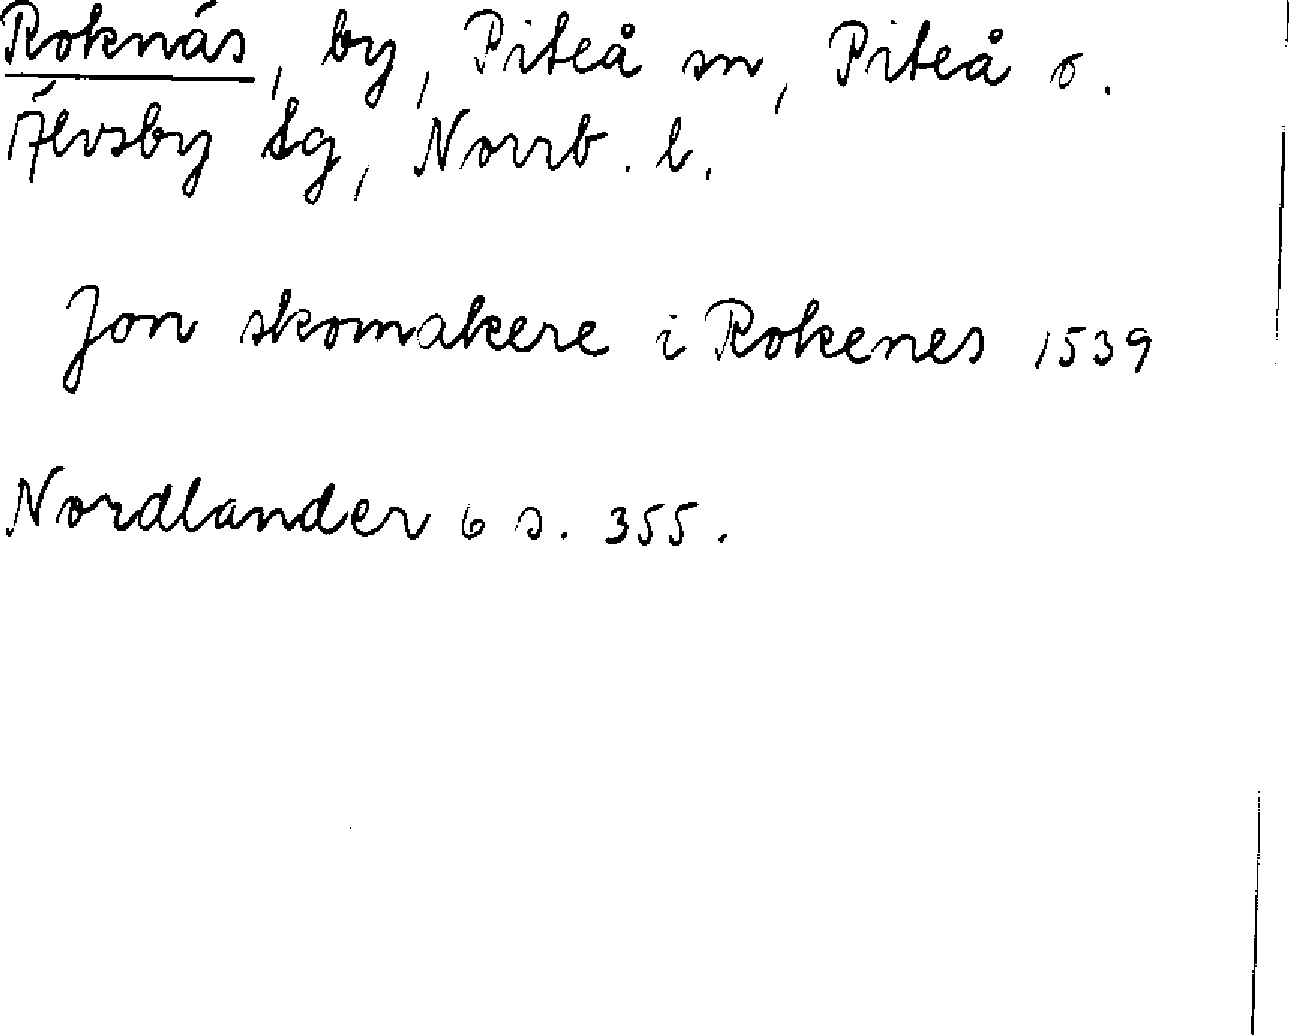 Roknäs, by, Piteå sn, Piteå o.
Älvsby tg, Norrb. l.
Jon skomakere i Rokenes 1539
Nordlander 6 s. 355.